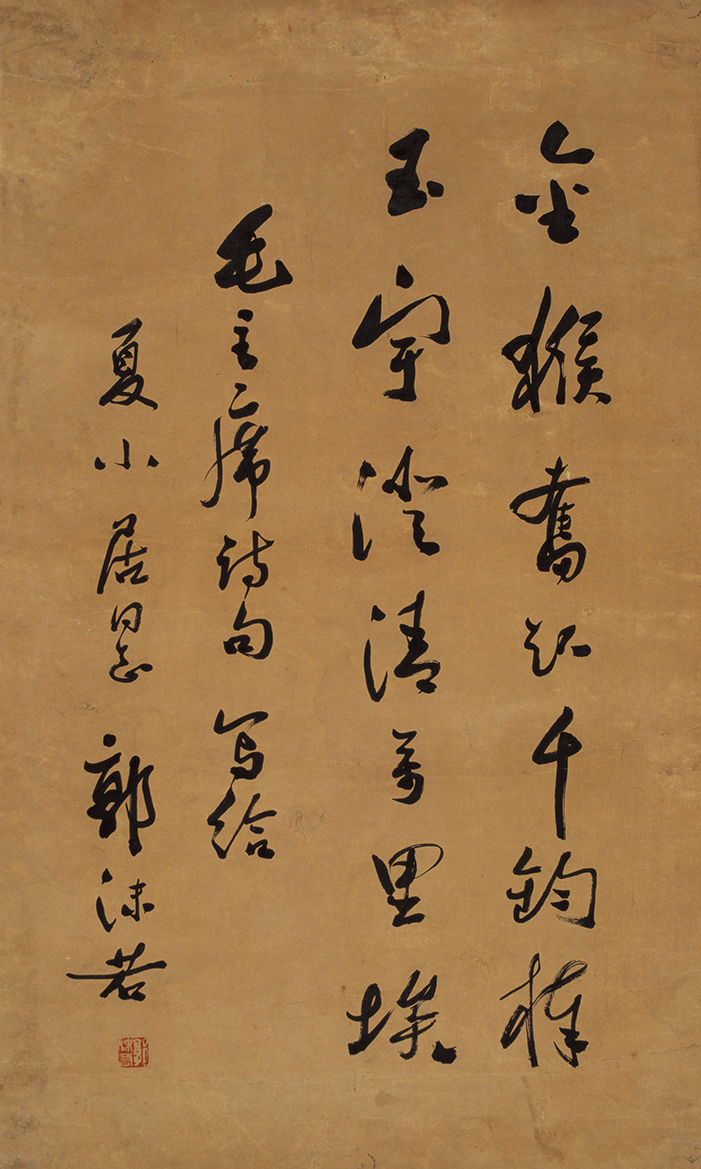 金猴奮起千鈞棒
玉宇澄清萬里埃
毛主席诗句写给
夏小居同志郭沫若